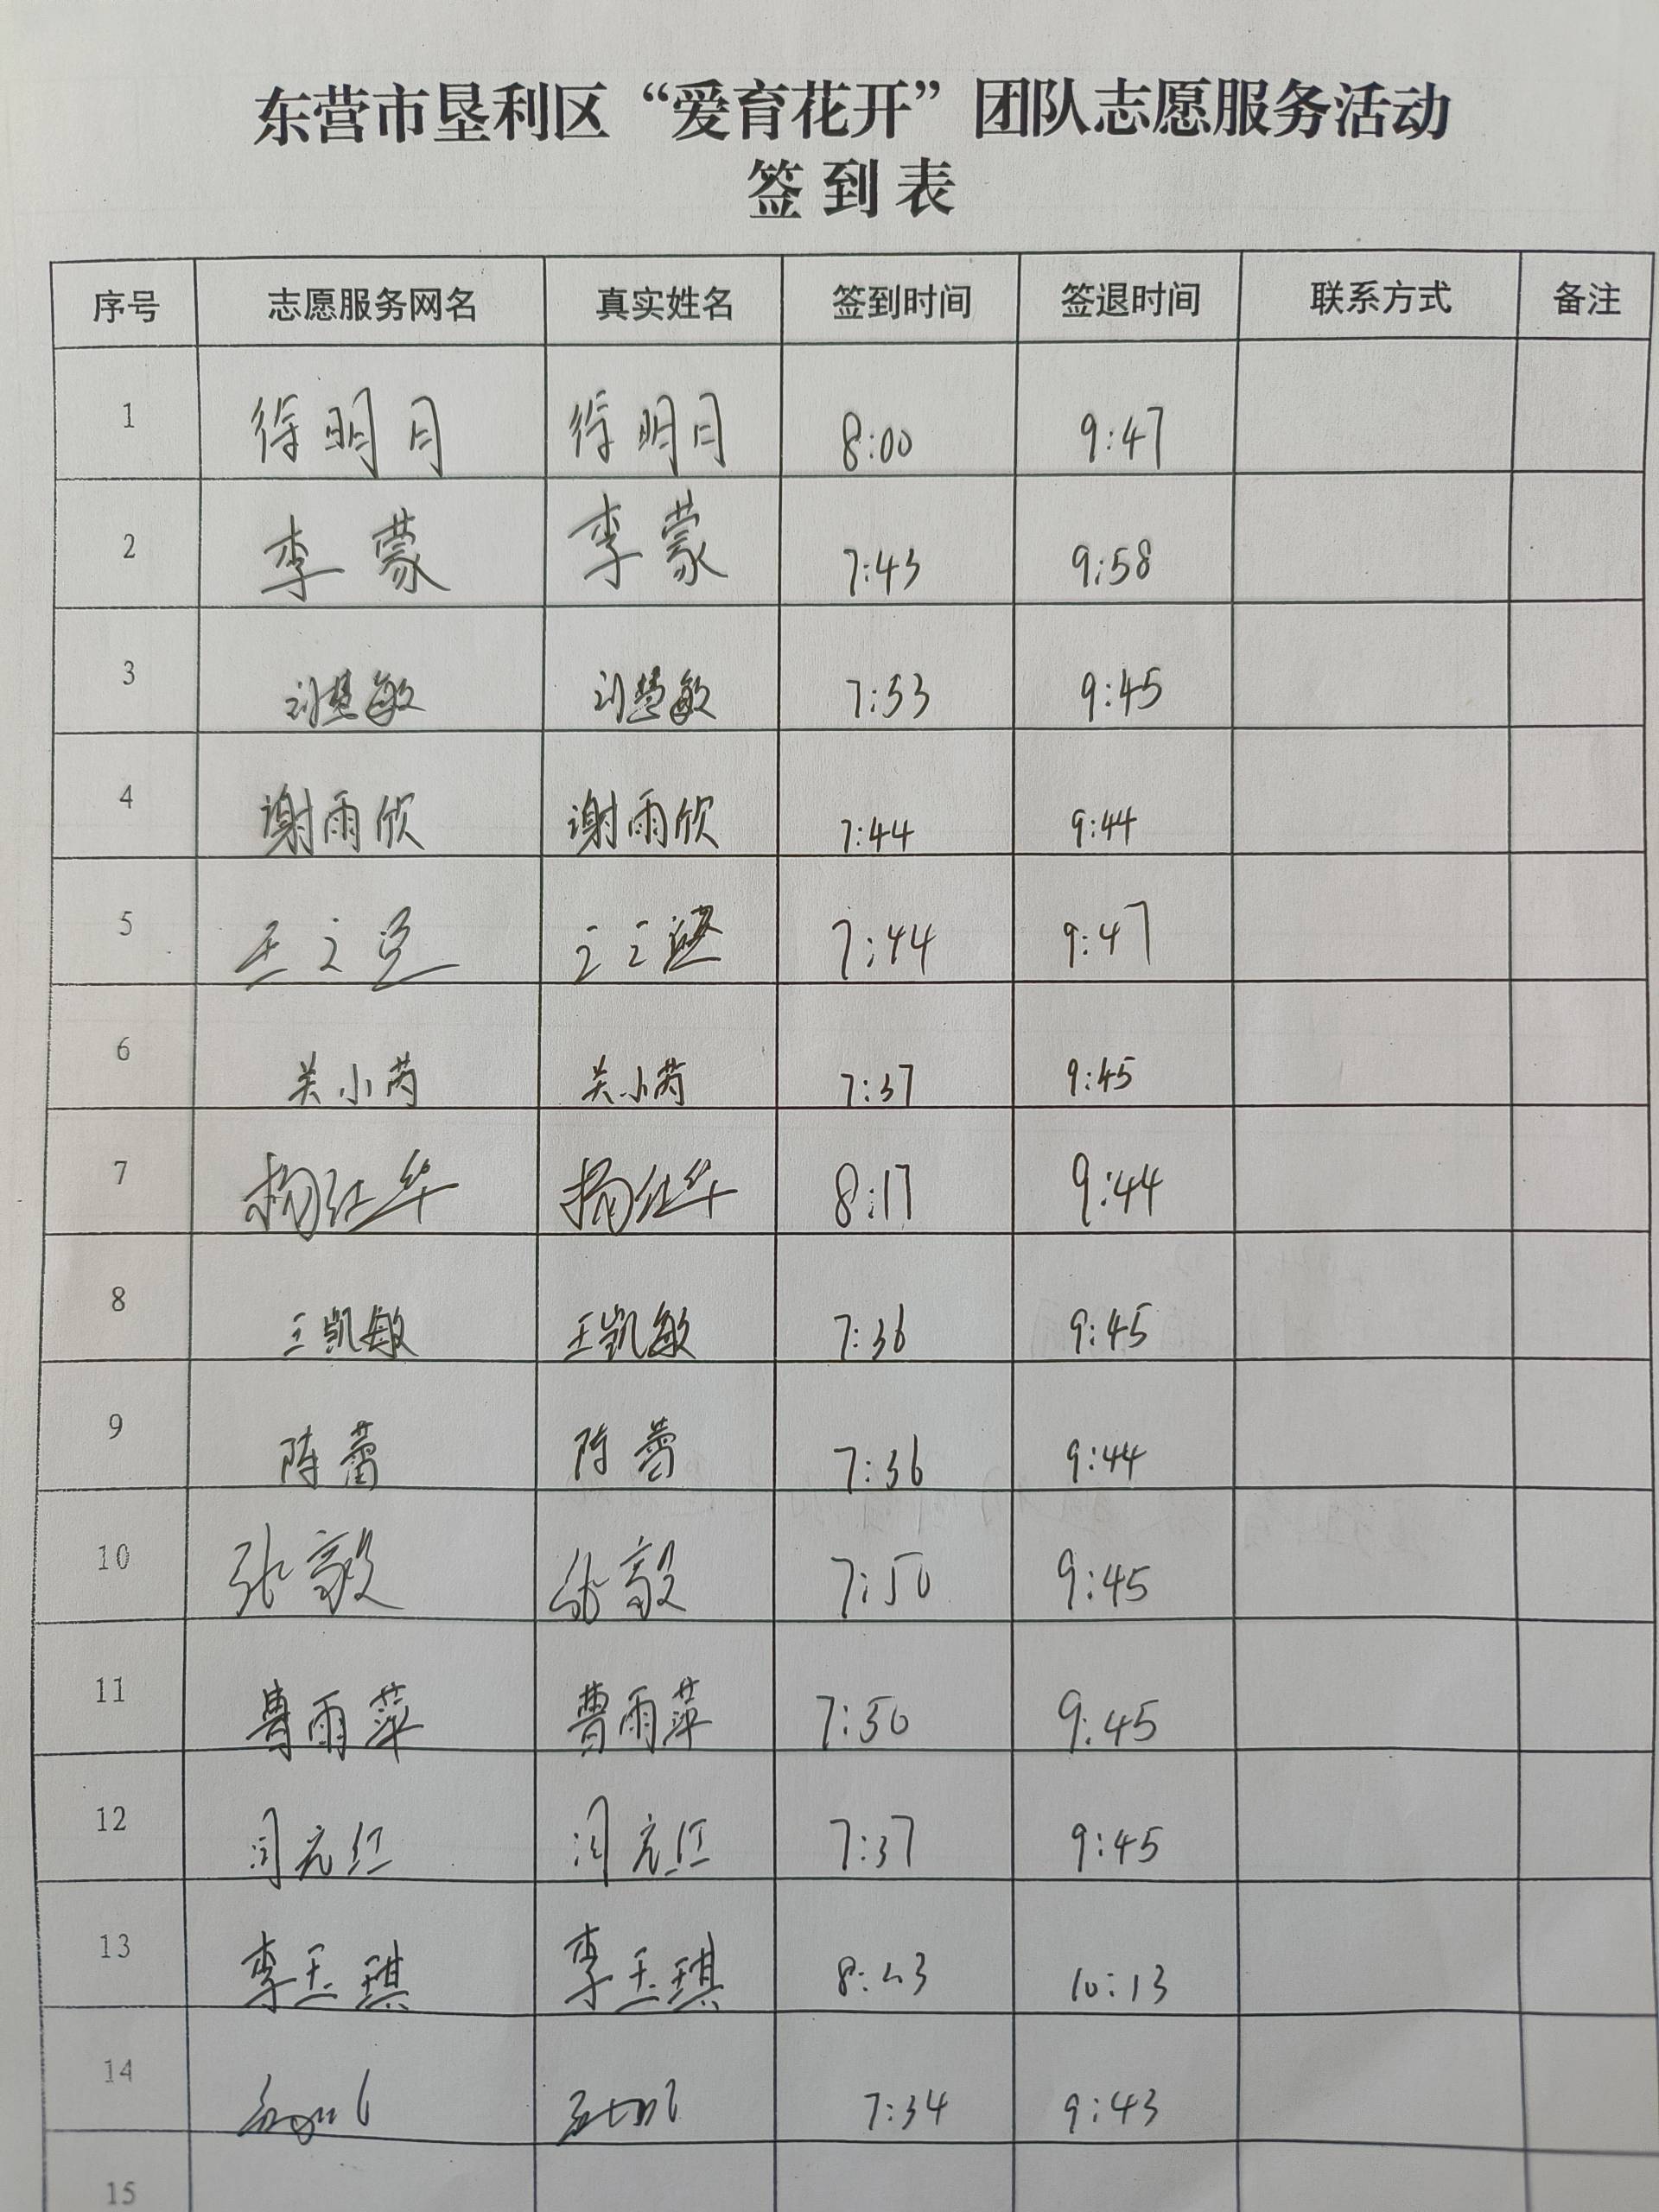 东营市垦利区“爱育花开”团队志愿服务活动
签到表
序号 志愿服务网名 真实姓名 签到时间 签退时间 联系方式 备注
1 徐明月 徐明月 8:00 9:47
2 李蒙 李蒙 7:43 9:58
3 刘慧敏 刘慧敏 7:53 9:45
4 谢雨欣 谢雨欣 7:44 9:44
5 王 7:44 9:47
6 关小芮 关小芮 7:37 9:45
7 杨红华 杨红华 8:17 9:44
8 王凯敏 王凯敏 7:36 9:45
9 陈蕾 陈蕾 7:36 9:44
10 张毅 张毅 7:50 9:45
11 曹雨萍 曹雨萍 7:50 9:45
12 闫克红 闫克红 7:37 9:45
13 李玉琪 李玉琪 8:23 10:13
14 7:34 9:43
15